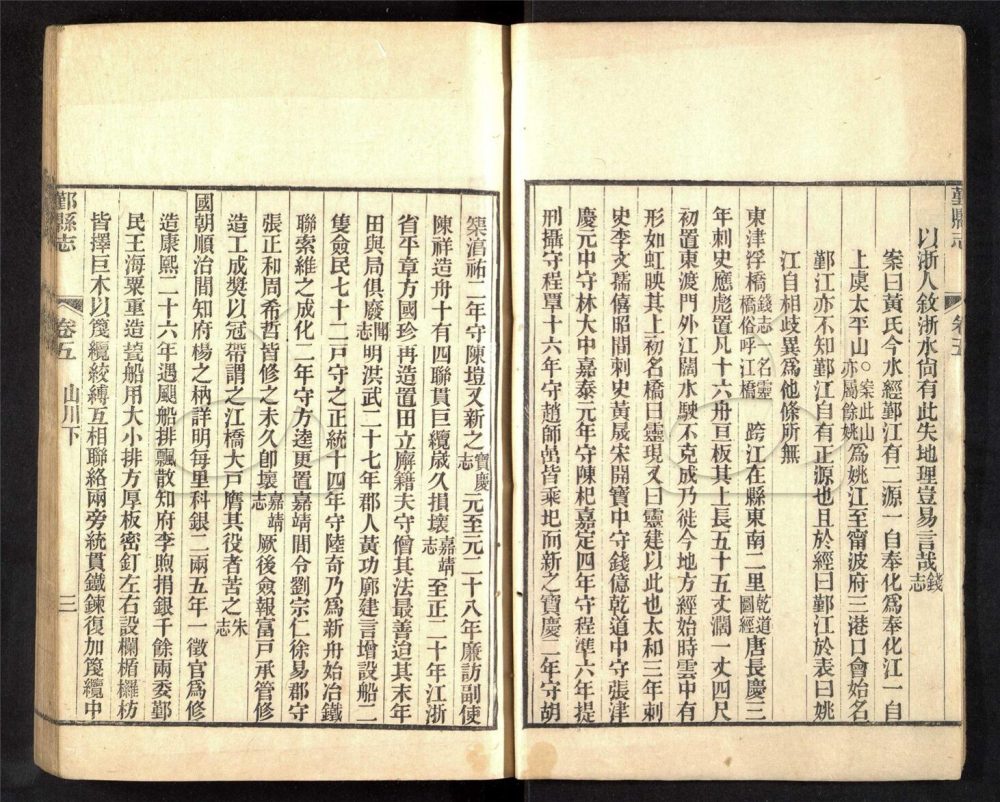 鄞縣志
卷五
以浙人敘浙水尙有此失地理豈易言哉錢志
案曰黃氏今水經鄞江有二源一自奉化爲奉化江一自
上虞太平山○案此山亦屬餘姚爲姚江至甯波府三港口會始名
鄞江亦不知鄞江自有正源也且於經曰鄞江於表曰姚
江自相歧異爲他條所無
東津浮橋錢志一名靈橋俗呼江橋 跨江在縣東南二里乾道圖經唐長慶三
年刺史應彪置凡十六舟亘板其上長五十五丈濶一丈四尺
初置東渡門外江闊水駛不克成乃徙今地方經始時雲中有
形如虹映其上初名橋曰靈現又曰靈建以此也太和三年刺
史李文孺僖昭間刺史黃晟宋開寶中守錢億乾道中守張津
慶元中守林大中嘉泰元年守陳杞嘉定四年守程準六年提
刑攝守程覃十六年守趙師嵒皆乘圯而新之寶慶二年守胡
榘淯祐二年守陳塏又新之寶慶志元至元二十八年廉訪副使
陳祥造舟十有四聯貫巨纜歲久損壞嘉靖志至正二十年江浙
省平章方國珍再造置田立廨籍夫守僧其法最善迨其末年
田與局俱廢聞志明洪武二十七年郡人黃功廓建言增設船二
隻僉民七十二戸守之正統十四年守陸奇乃爲新舟始冶鐵
聯索維之成化二年守方逵更置嘉靖間令劉宗仁徐易郡守
張正和周希哲皆修之未久卽壞嘉靖志厥後僉報富戸承管修
造工成奬以冠帶謂之江橋大戸膺其役者苦之朱志
國朝順治間知府楊之柄詳明每里科銀二兩五年一徵官爲修
造康熙二十六年遇颶船排飄散知府李煦捐銀千餘兩委鄞
民王海粟重造甃船用大小排方厚板密釘左右設欄楯欏枋
皆擇巨木以篾纜絞縛互相聯絡兩旁統貫鐵鍊復加篾纜中
鄞縣志
卷五 山川下
三